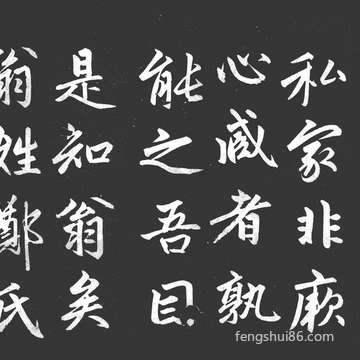 私家非厥
心臧者孰
能之吾曰
是知翁矣
翁姓鄭氏
fengshui86.com